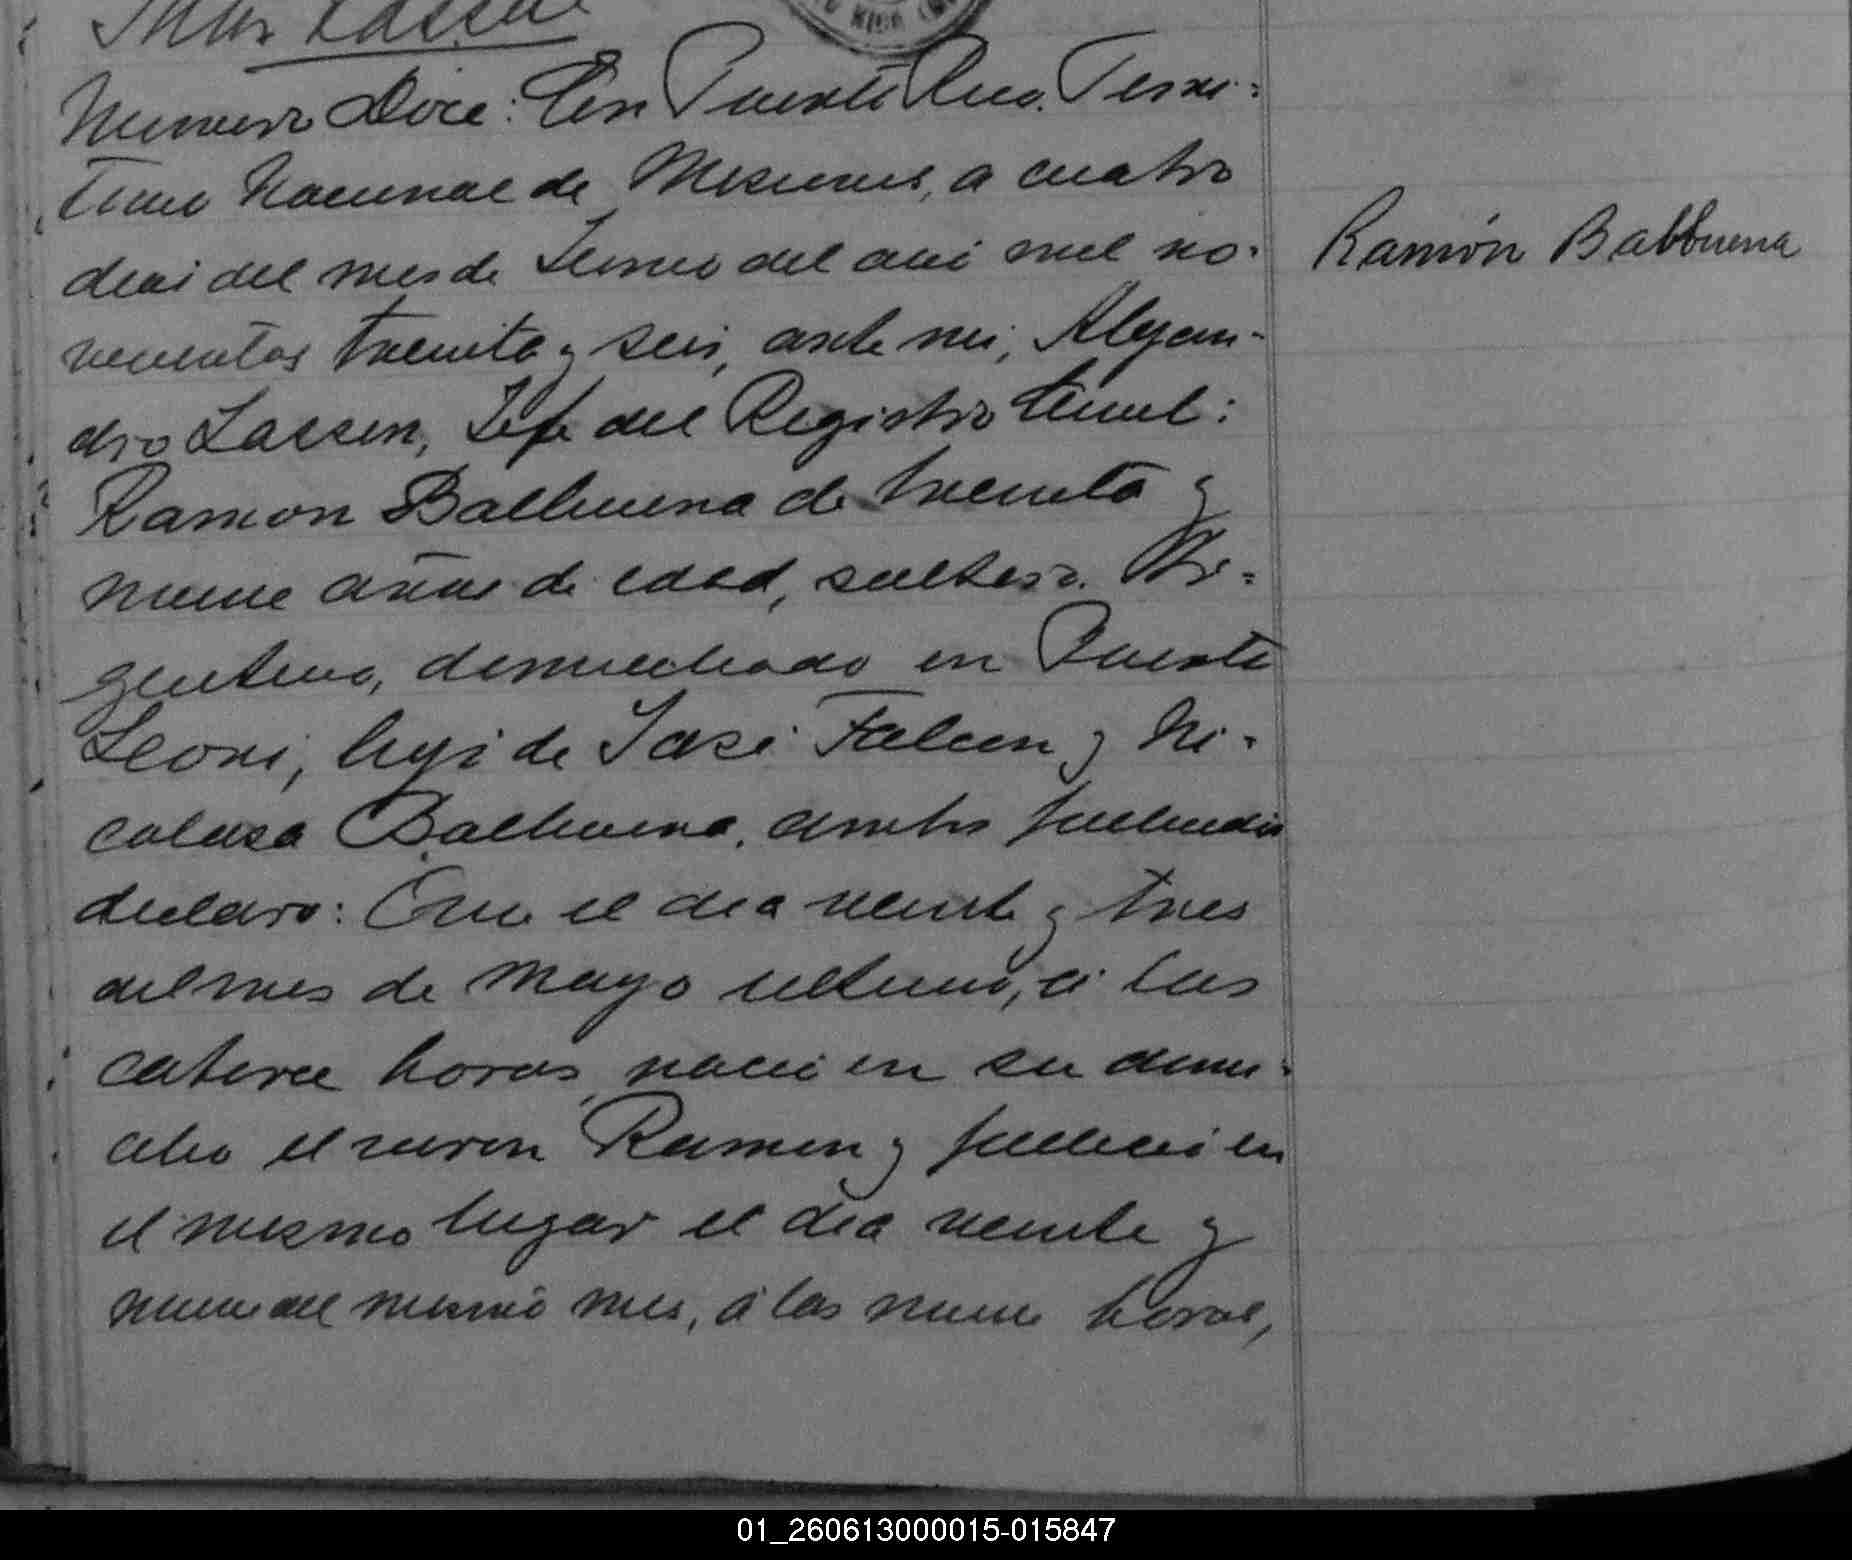 Max Lassen
RICO (M
Numero Doce: En Puerto Rico. Terri=
torio Nacional de Misiones, a cuatro
dias del mes de Junio del año mil no-
vecientos treinta y seis, ante mi, Alejan-
dro Lassen, Jefe del Registro Civil:
Ramon Balbuena de treinta y
nueve años de edad, soltero. Ar=
gentino, domiciliado en Puerto
Leoni, hijo de José Falcon y Ni-
colasa Balbuena, ambos fallecidos
declaro: Que el dia veinte y tres
del mes de Mayo ultimo, á las
catorce horas, nació en su domi-
cilio el varon Ramon y falleció en
el mismo lugar el dia veinte y
nueve del mismo mes, á las nueve horas,
Ramón Balbuena
01_260613000015-015847